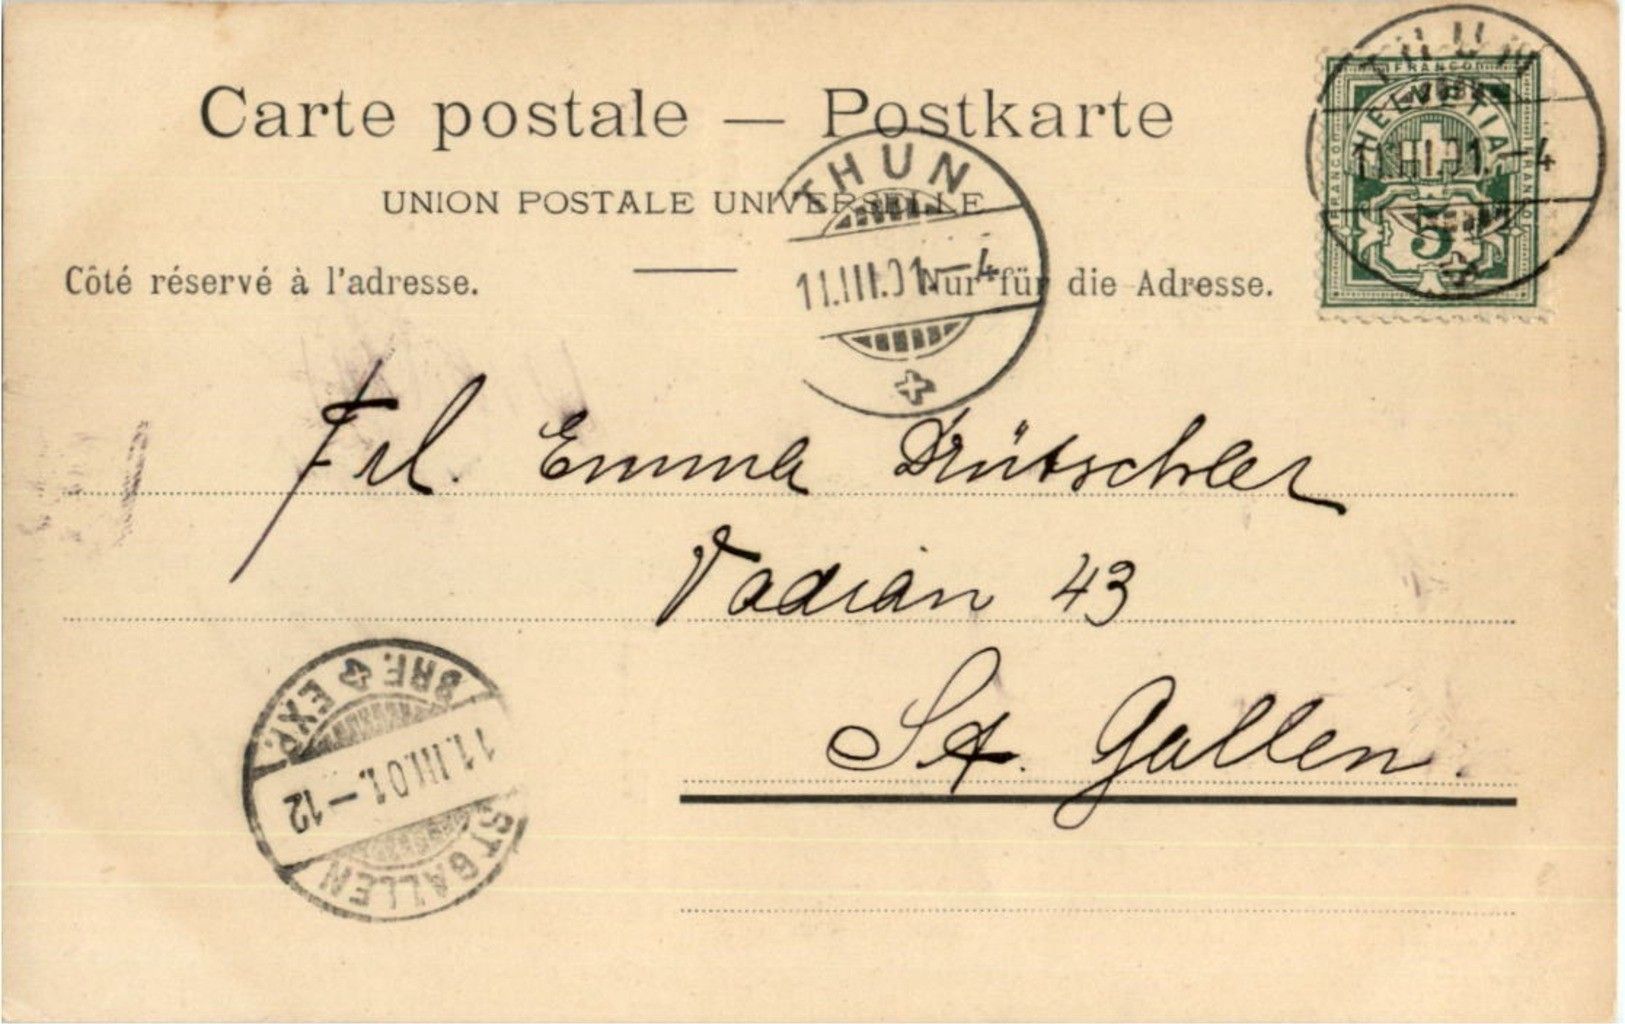 Carte postale — Postkarte
UNION POSTALE UNIVERSELLE
Côté réservé à l'adresse.
Nur für die Adresse.
THUN
11.III.01.–4
FRANCO
HELVETIA
FRANCO
FRANCO
5
THUN
11.III.01.–4
Frl. Emma Drütschler
Vadian 43
St. Gallen.
ST GALLEN
11.III.01.–12
BRF. EXP.